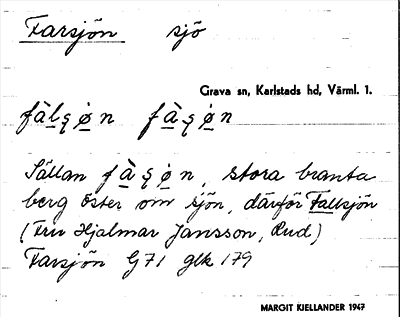 Farsjön sjö
Grava sn, Karlstads hd, Värml. 1.
fàlʂøn fàʂøn
Sällan fàʂøn, stora branta
berg öster om sjön, därför Fallsjön
(Fru Hjalmar Jansson, Rud)
Farsjön G71 glk 179
MARGIT KIELLANDER 1947